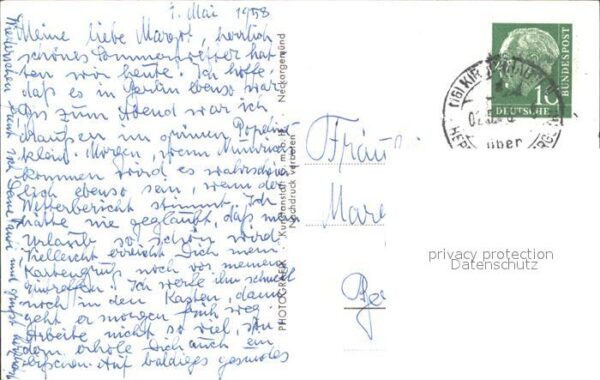 1. Mai 1958
Meine liebe Margot, herrlich
schönes Sommerwetter hat
ten wir heute. Ich hoffe,
daß es in ebenso war.
Bis zum Abend war ich
draußen im grünen Popelin
kleid. Morgen, wenn
kommen wird es wahrschein
lich ebenso sein, wenn der
Wetterbericht stimmt. Ich
hätte nie geglaubt, daß mein
Urlaub so schön wird.
Vielleicht erreicht Dich mein
Kartengruß noch vor meinem
Eintreffen. Ich werfe ihn schnell
noch in den Kasten, dann
geht er morgen früh weg.
Arbeite nicht so viel, son
dern erhole Dich auch ein
bißchen. Auf baldiges gesundes
Wiedersehen
PHOTOGRAFIE: Kunstanstalt G. m. b. H. Neckargemünd
Nachdruck verboten
Fräul
Mar
10
DEUTSCHE
BUNDESPOST
über
privacy protection
Datenschutz